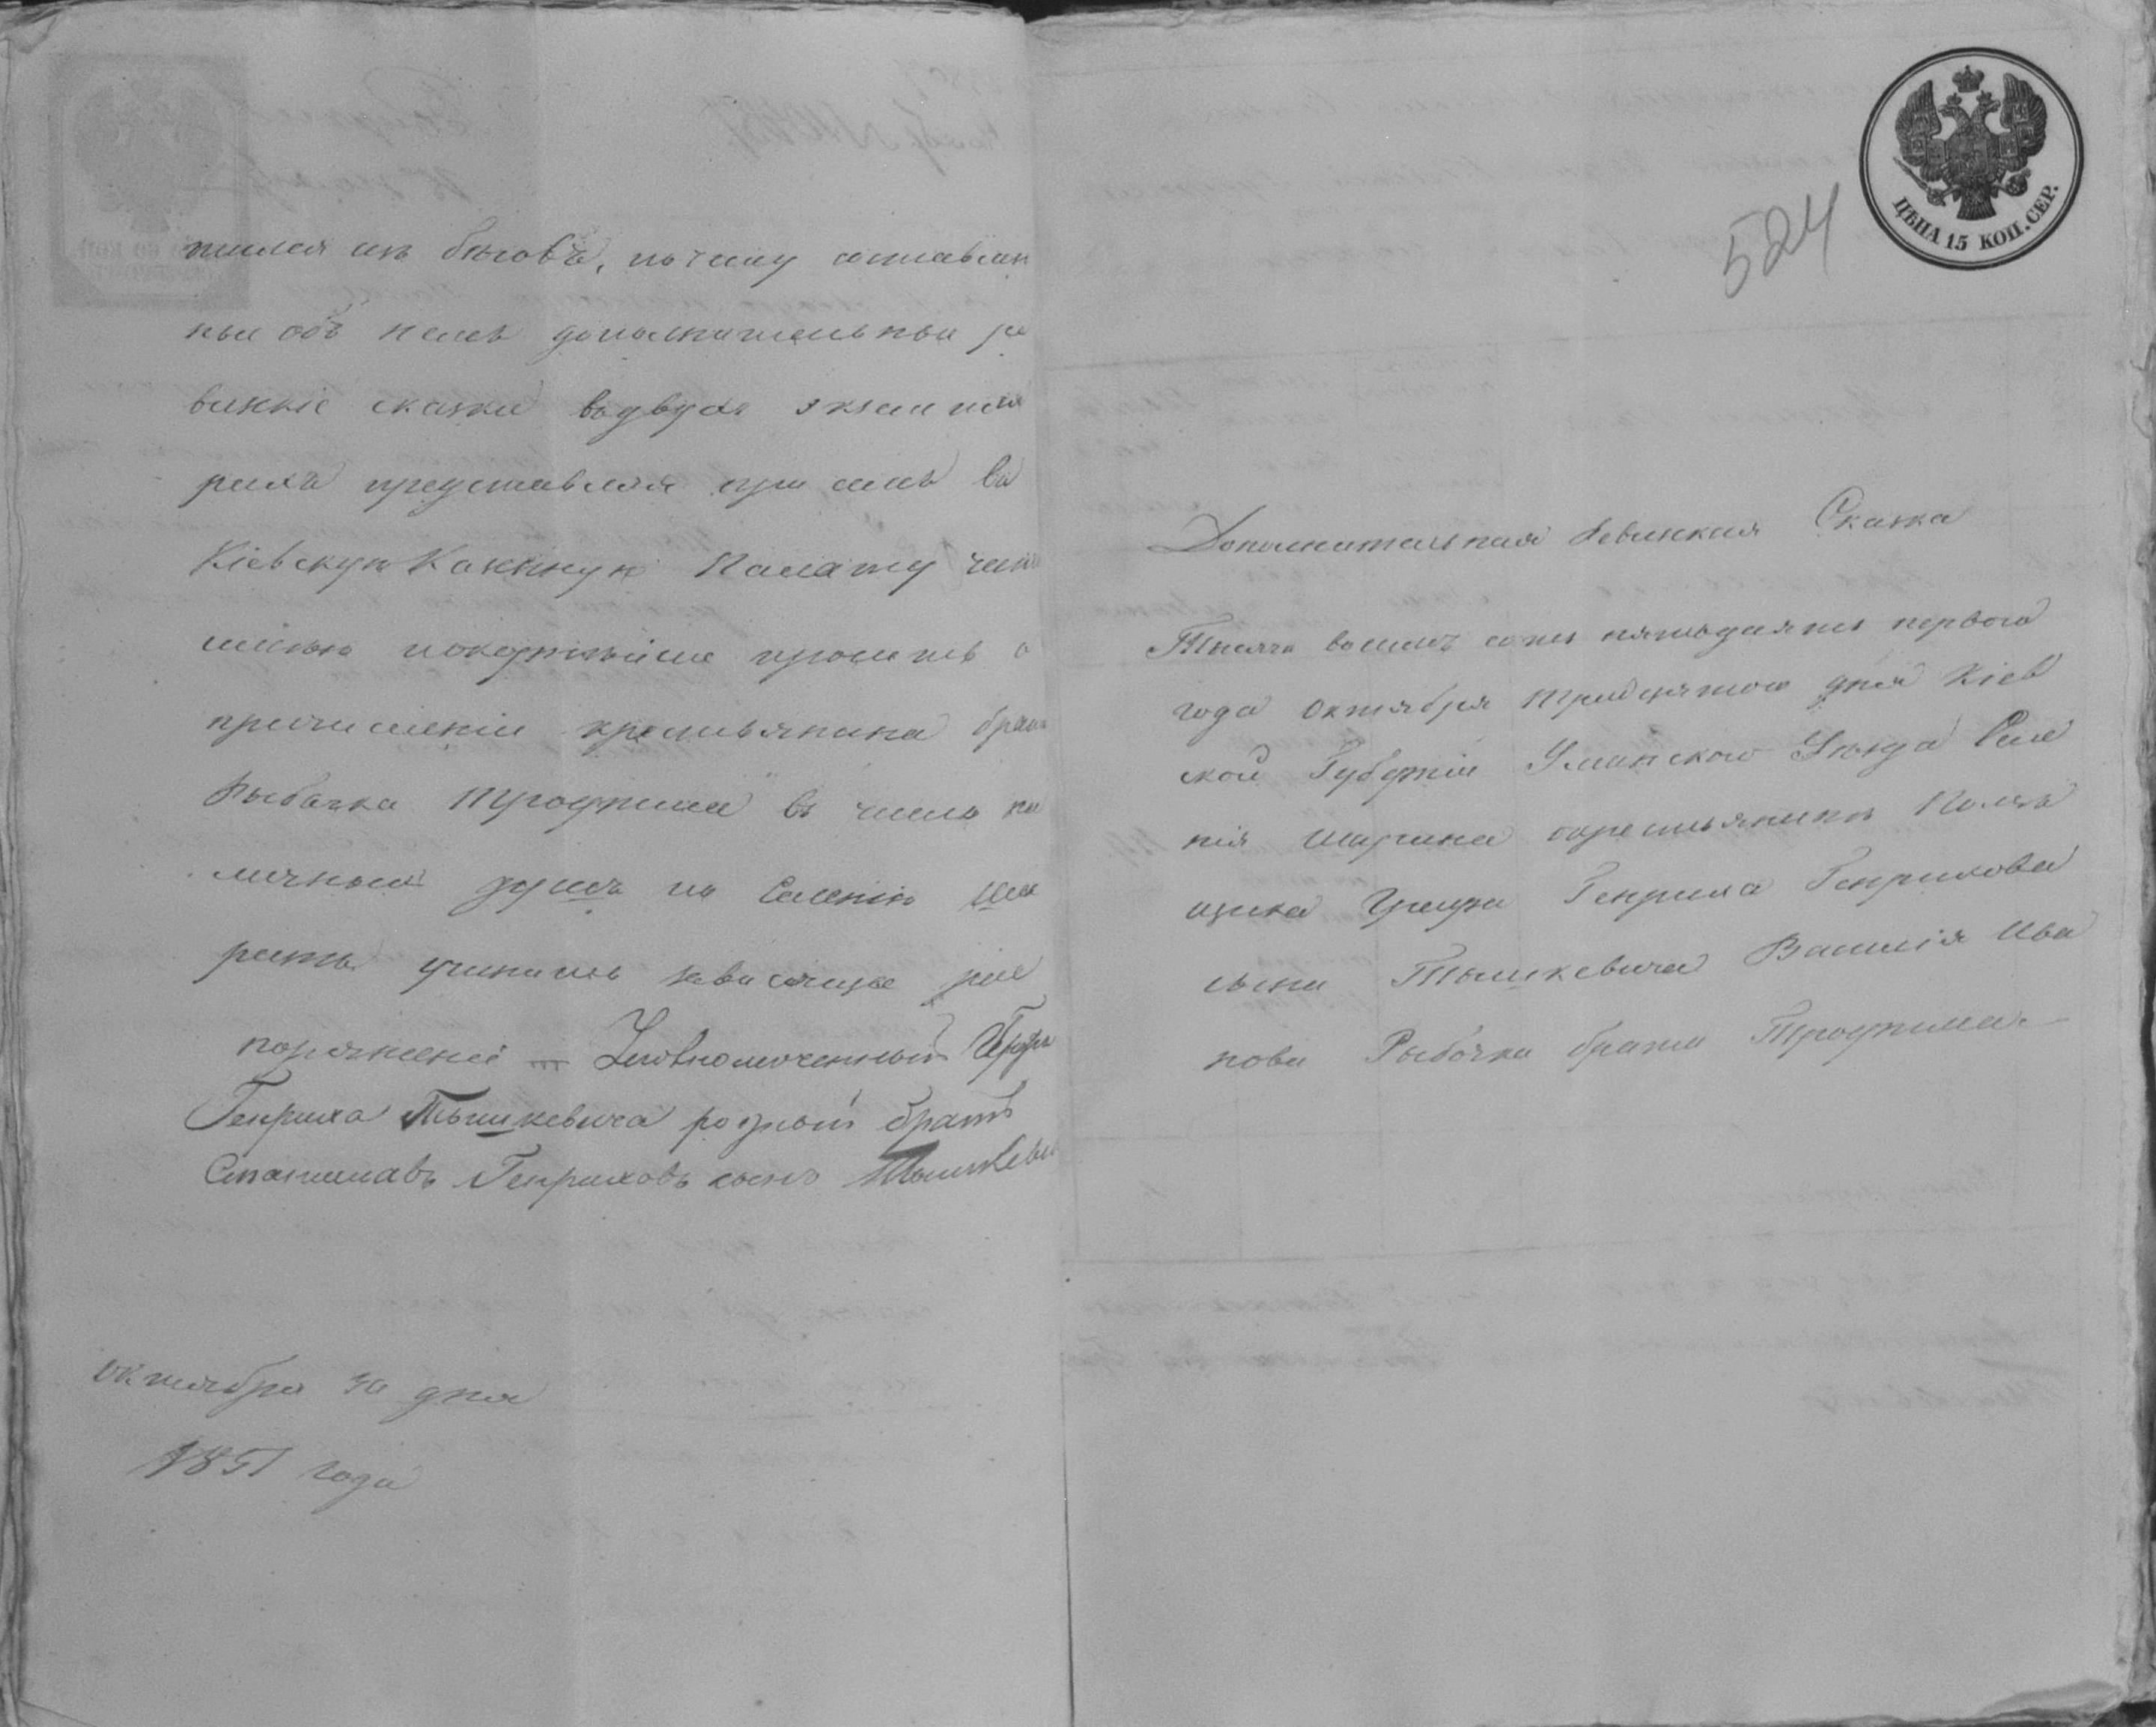 тился изъ бѣговъ, почему составлен
ныя объ немъ дополнительныя ре
визкіе сказки въ двухъ экземпля
рахъ представляя при семъ въ
Кіевскую Казенную Палату честь
имѣю покорнѣйше просить о
причисленіи крестьянина брата
Рыбачка Трофима въ число на
личныхъ душъ по Селенію Ша
рина учинить зависящее рас
поряженіе Уполномоченный Графа
Генриха Тышкевича родный братъ
Станиславъ Генриховъ сынъ Тышкевич
октября 30 дня
1851 года
ЦѢНА 15 КОП. СЕР.
524
Дополнительная Ревизкая Сказка
Тысяча восемь сотъ пятьдесятъ первого
года Октября тридцятого дня Кіев
ской Губерніи Уманского Уѣзда Селе
нія Шарина о крестьянинѣ Помѣ
щика Графа Генриха Генрихова
сына Тышкевича Василія Ива
нова Рыбочка брата Трофима